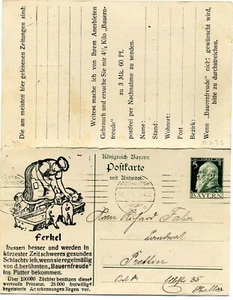 Die am meisten hier gelesenen Zeitungen sind:
Weiters mache ich von Ihrem Anerbieten
Gebrauch und ersuche Sie mir 4½ Kilo „Bauern-
freude"
zu 3 Mk. 60 Pf.
postfrei per Nachnahme zu senden.
Name:
Stand:
Wohnort:
Post
Bezirk:
Wenn „Bauernfreude" nicht gewünscht wird,
bitte zu durchstreichen.
Königreich Bayern
Postkarte
mit Antwort
BAYERN
Ferkel
fressen besser und werden in
kürzester Zeit schweres gesundes
Schlachtvieh, wenn sie regelmäßig
von d. berühmten „Bauernfreude"
ins Futter bekommen.
Über 100000 Züchter benützen dauernd
wertvolle Präparat. 25000 freiwillig
eingesandte Anerkennungen liegen vor.
Herrn